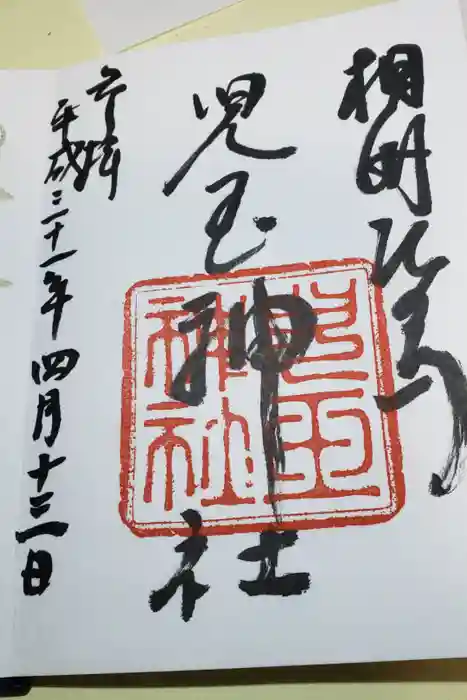 相州江島
児玉神社
兒玉神社
奉拝
平成三十一年四月十三日